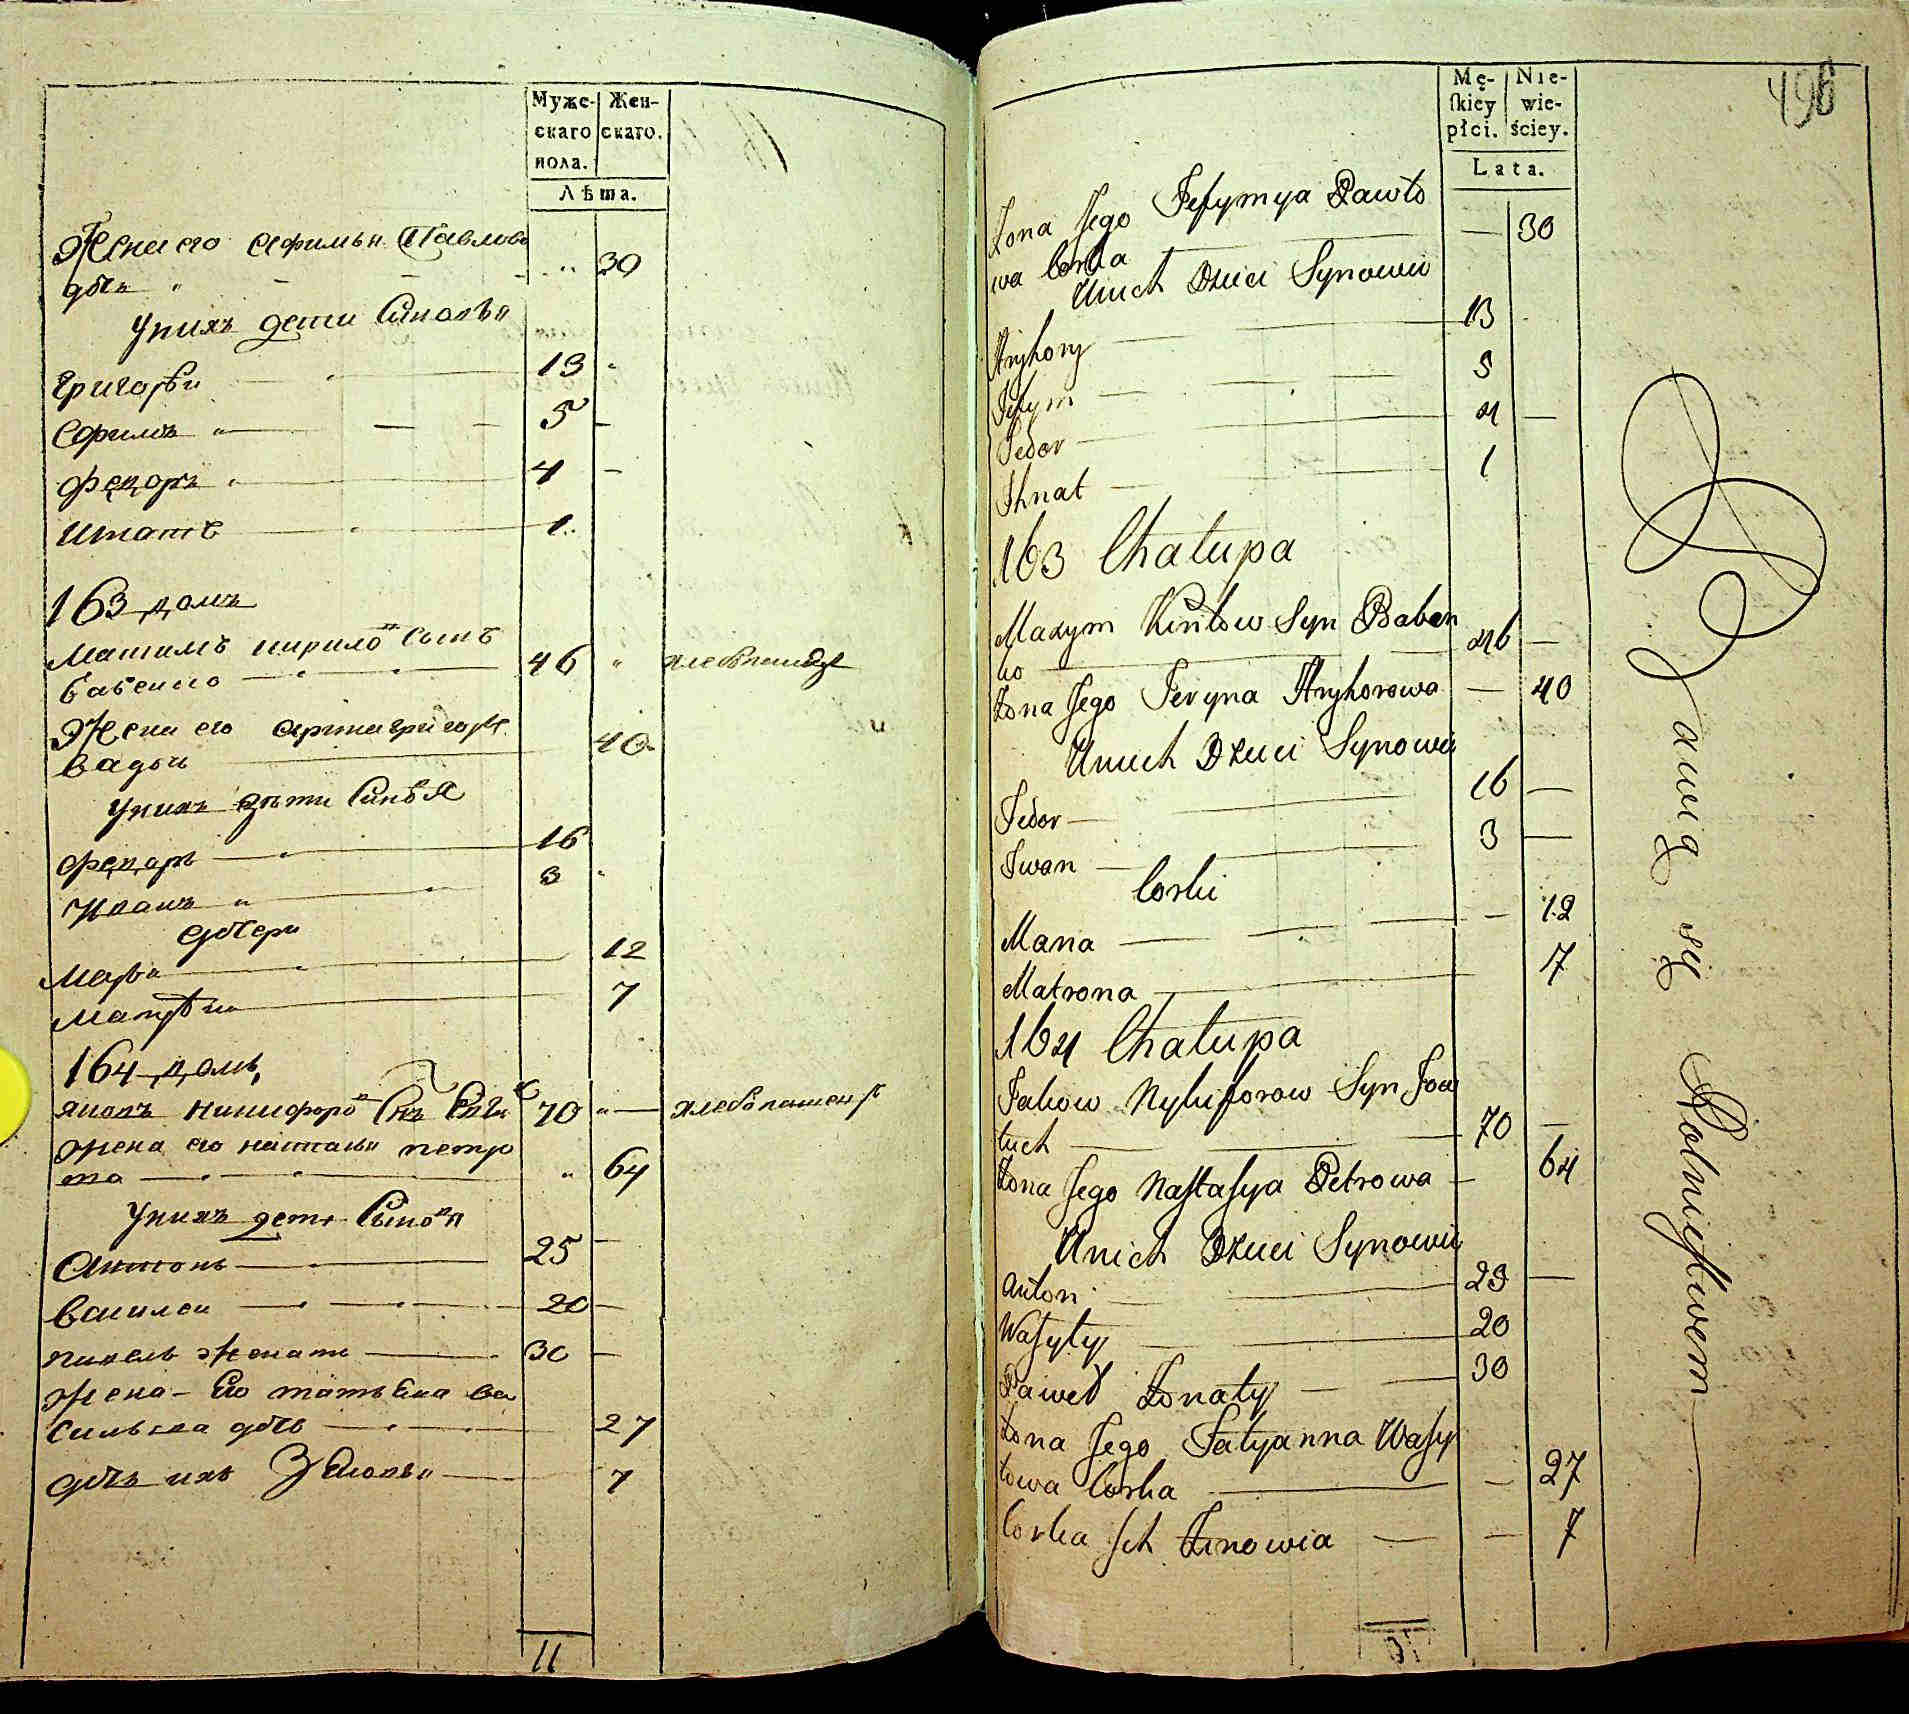 Муже- Жен-
скаго скаго.
пола.
Лѣта.
Жена его Ефимья Павлова
дочь 30
У нихъ дети Сыновья
Григорѣи 13
Ефимъ 5
Федоръ 4
Игнатъ 1
163 домъ
Матимъ Кирило сынъ
Бабенко 46 хлебопашец
Жена его Григорь
ва дочь 40
У нихъ дѣти Сыновья
Федоръ 16
Иванъ 3
дочери
Марья 12
Матрѣна 7
164 домъ
Яковъ Никифоро Снъ 70 хлебопашец
Жена его Настасья петро
64
У нихъ дети Сыновья
Антонъ 25
Василеи 20
Павелъ женатъ 30
Жена Его татьяна ва
сильева дочь 27
дочь ихъ Зѣновья 7
11
Mę- Nie-
skiey wie-
płci. ściey.
Lata.
496
Żona Jego Jefymya Pawło
wa Corka 30
Unich Dzieci Synowie
Hryhory 13
Jefym 5
Fedor 4
Ihnat 1
163 Chałupa
Maxym Kiryłow Syn Baben
ko 46
Żona Jego Jeryna Hryhorowa 40
Unich Dzieci Synowie
Fedor 16
Iwan 3
Corki
Marya 12
Matrona 7
164 Chałupa
Jakow Nykiforow Syn
70
Żona Jego Nastasya Petrowa 64
Unich Dzieci Synowie
Anton 25
Wasyly 20
Paweł Żonaty 30
Żona Jego Tatyanna Wasy
lowa Corka 27
Corka Ich Zinowia 7
Bawią się Rolnictwem